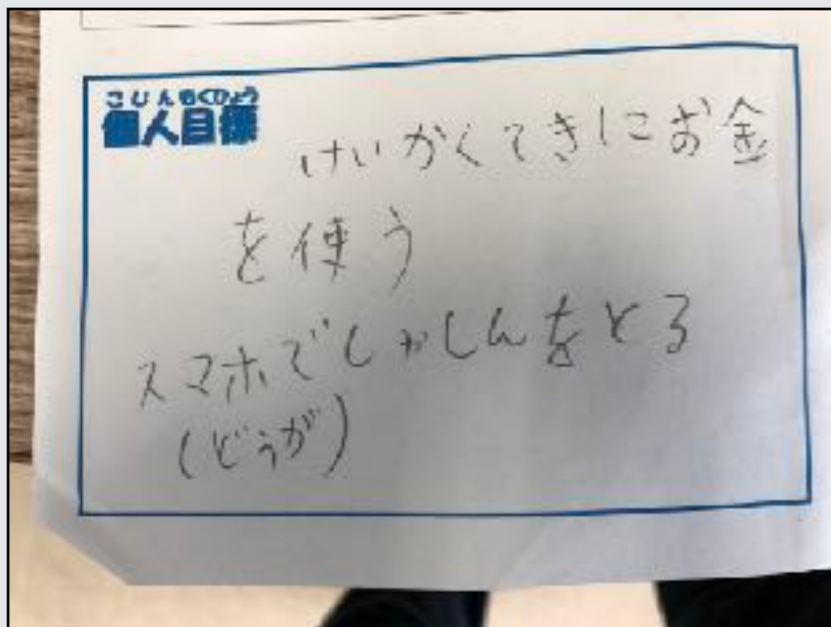 こじんもくひょう
個人目標
けいかくてきにお金
を使う
スマホでしゃしんをとる
(どうが)